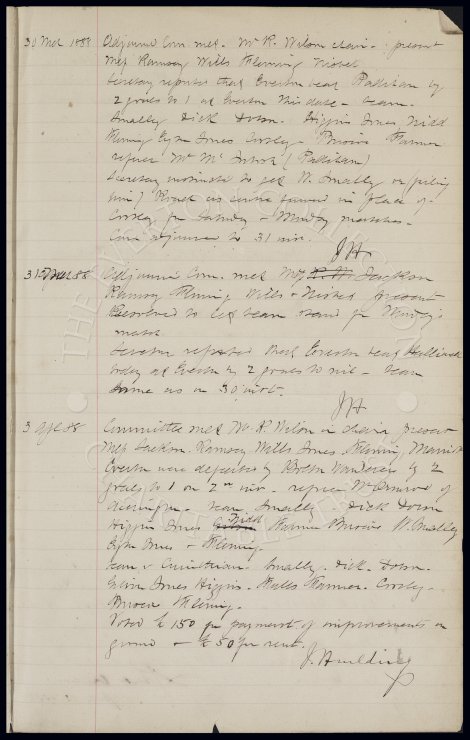 30 Mch 1888 Adjourned Com. met. Mr R. Wilson chair. present
Mess Ramsey Wills Fleming Nisbet
Secretary reported that Everton beat Padiham by
2 goals to 1 at Everton this date - team.
Smalley Dick Dobson. Higgins Jones Kidd
Fleming Izatt Jones Costley - Briscoe Farmer
referee Mr Mc (Padiham)
Secretary instructed to get W. Smalley or (failing
him) as centre forward in place of
Costley for Saturday & Monday matches.
Com adjourned to 31 inst.
J H.
31 Mch 88 Adjourned Com. met Mess Jackson
Ramsey Fleming Wills & Nisbet present
Resolved to let team stand for Monday's
match.
Secretary reported that Everton beat Halliwell
today at Everton by 2 goals to nil - team
same as on 30 inst.
J H
3 Apl 88 Committee met Mr R Wilson in chair present
Mess Jackson. Ramsey, Wills Jones Fleming Marriott
Everton were defeated by Bolton Wanderers by 2
goals to 1 on 2nd inst. - referee Mr Ormerod of
Accrington - team Smalley Dick Dobson
Higgins Jones Kidd Farmer Briscoe W. Smalley
Izatt Jones & Fleming.
Team v Corinthian. Smalley. Dick. Dobson.
Jones Higgins. Farmer. Costley.
Briscoe Fleming.
Voted £150 for payment of improvements on
ground & £50 for rent.
J. Houlding